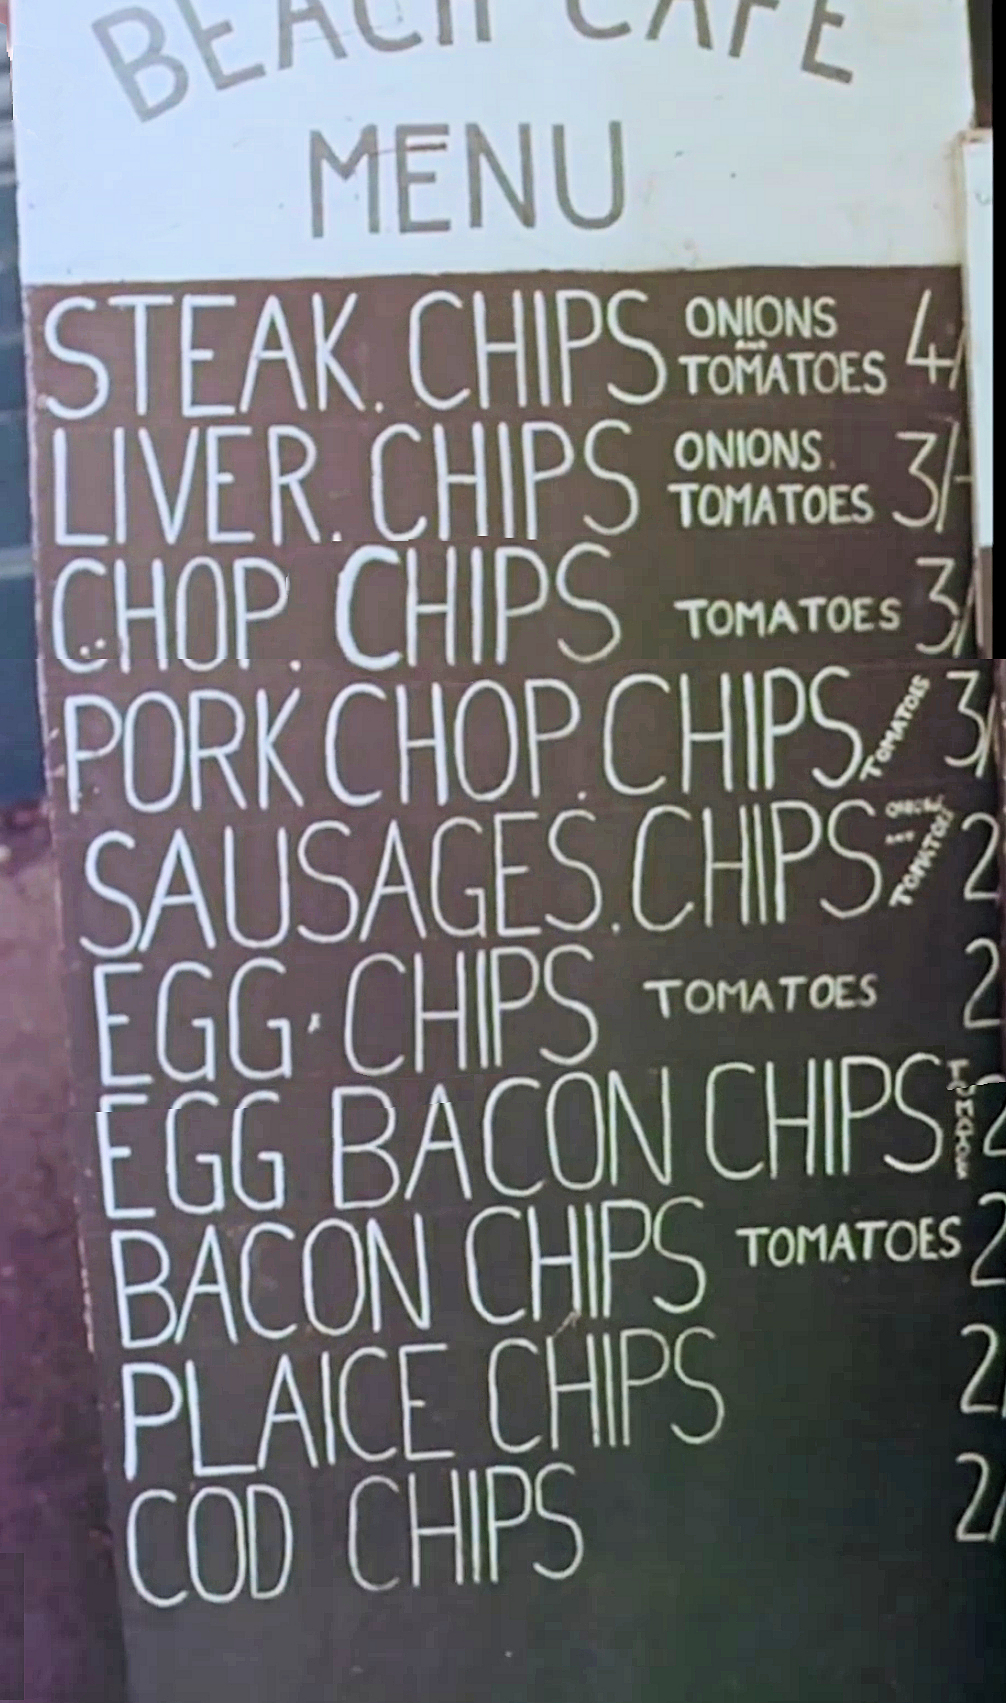 BEACH CAFE
MENU
STEAK. CHIPS ONIONS AND TOMATOES 4/
LIVER. CHIPS ONIONS. TOMATOES 3/-
CHOP. CHIPS TOMATOES 3/
PORK CHOP. CHIPS. TOMATOES 3/
SAUSAGES. CHIPS ONIONS AND TOMATOES 2
EGG. CHIPS TOMATOES 2
EGG BACON CHIPS TOMATOES 2
BACON CHIPS TOMATOES 2
PLAICE CHIPS 2/
COD CHIPS 2/